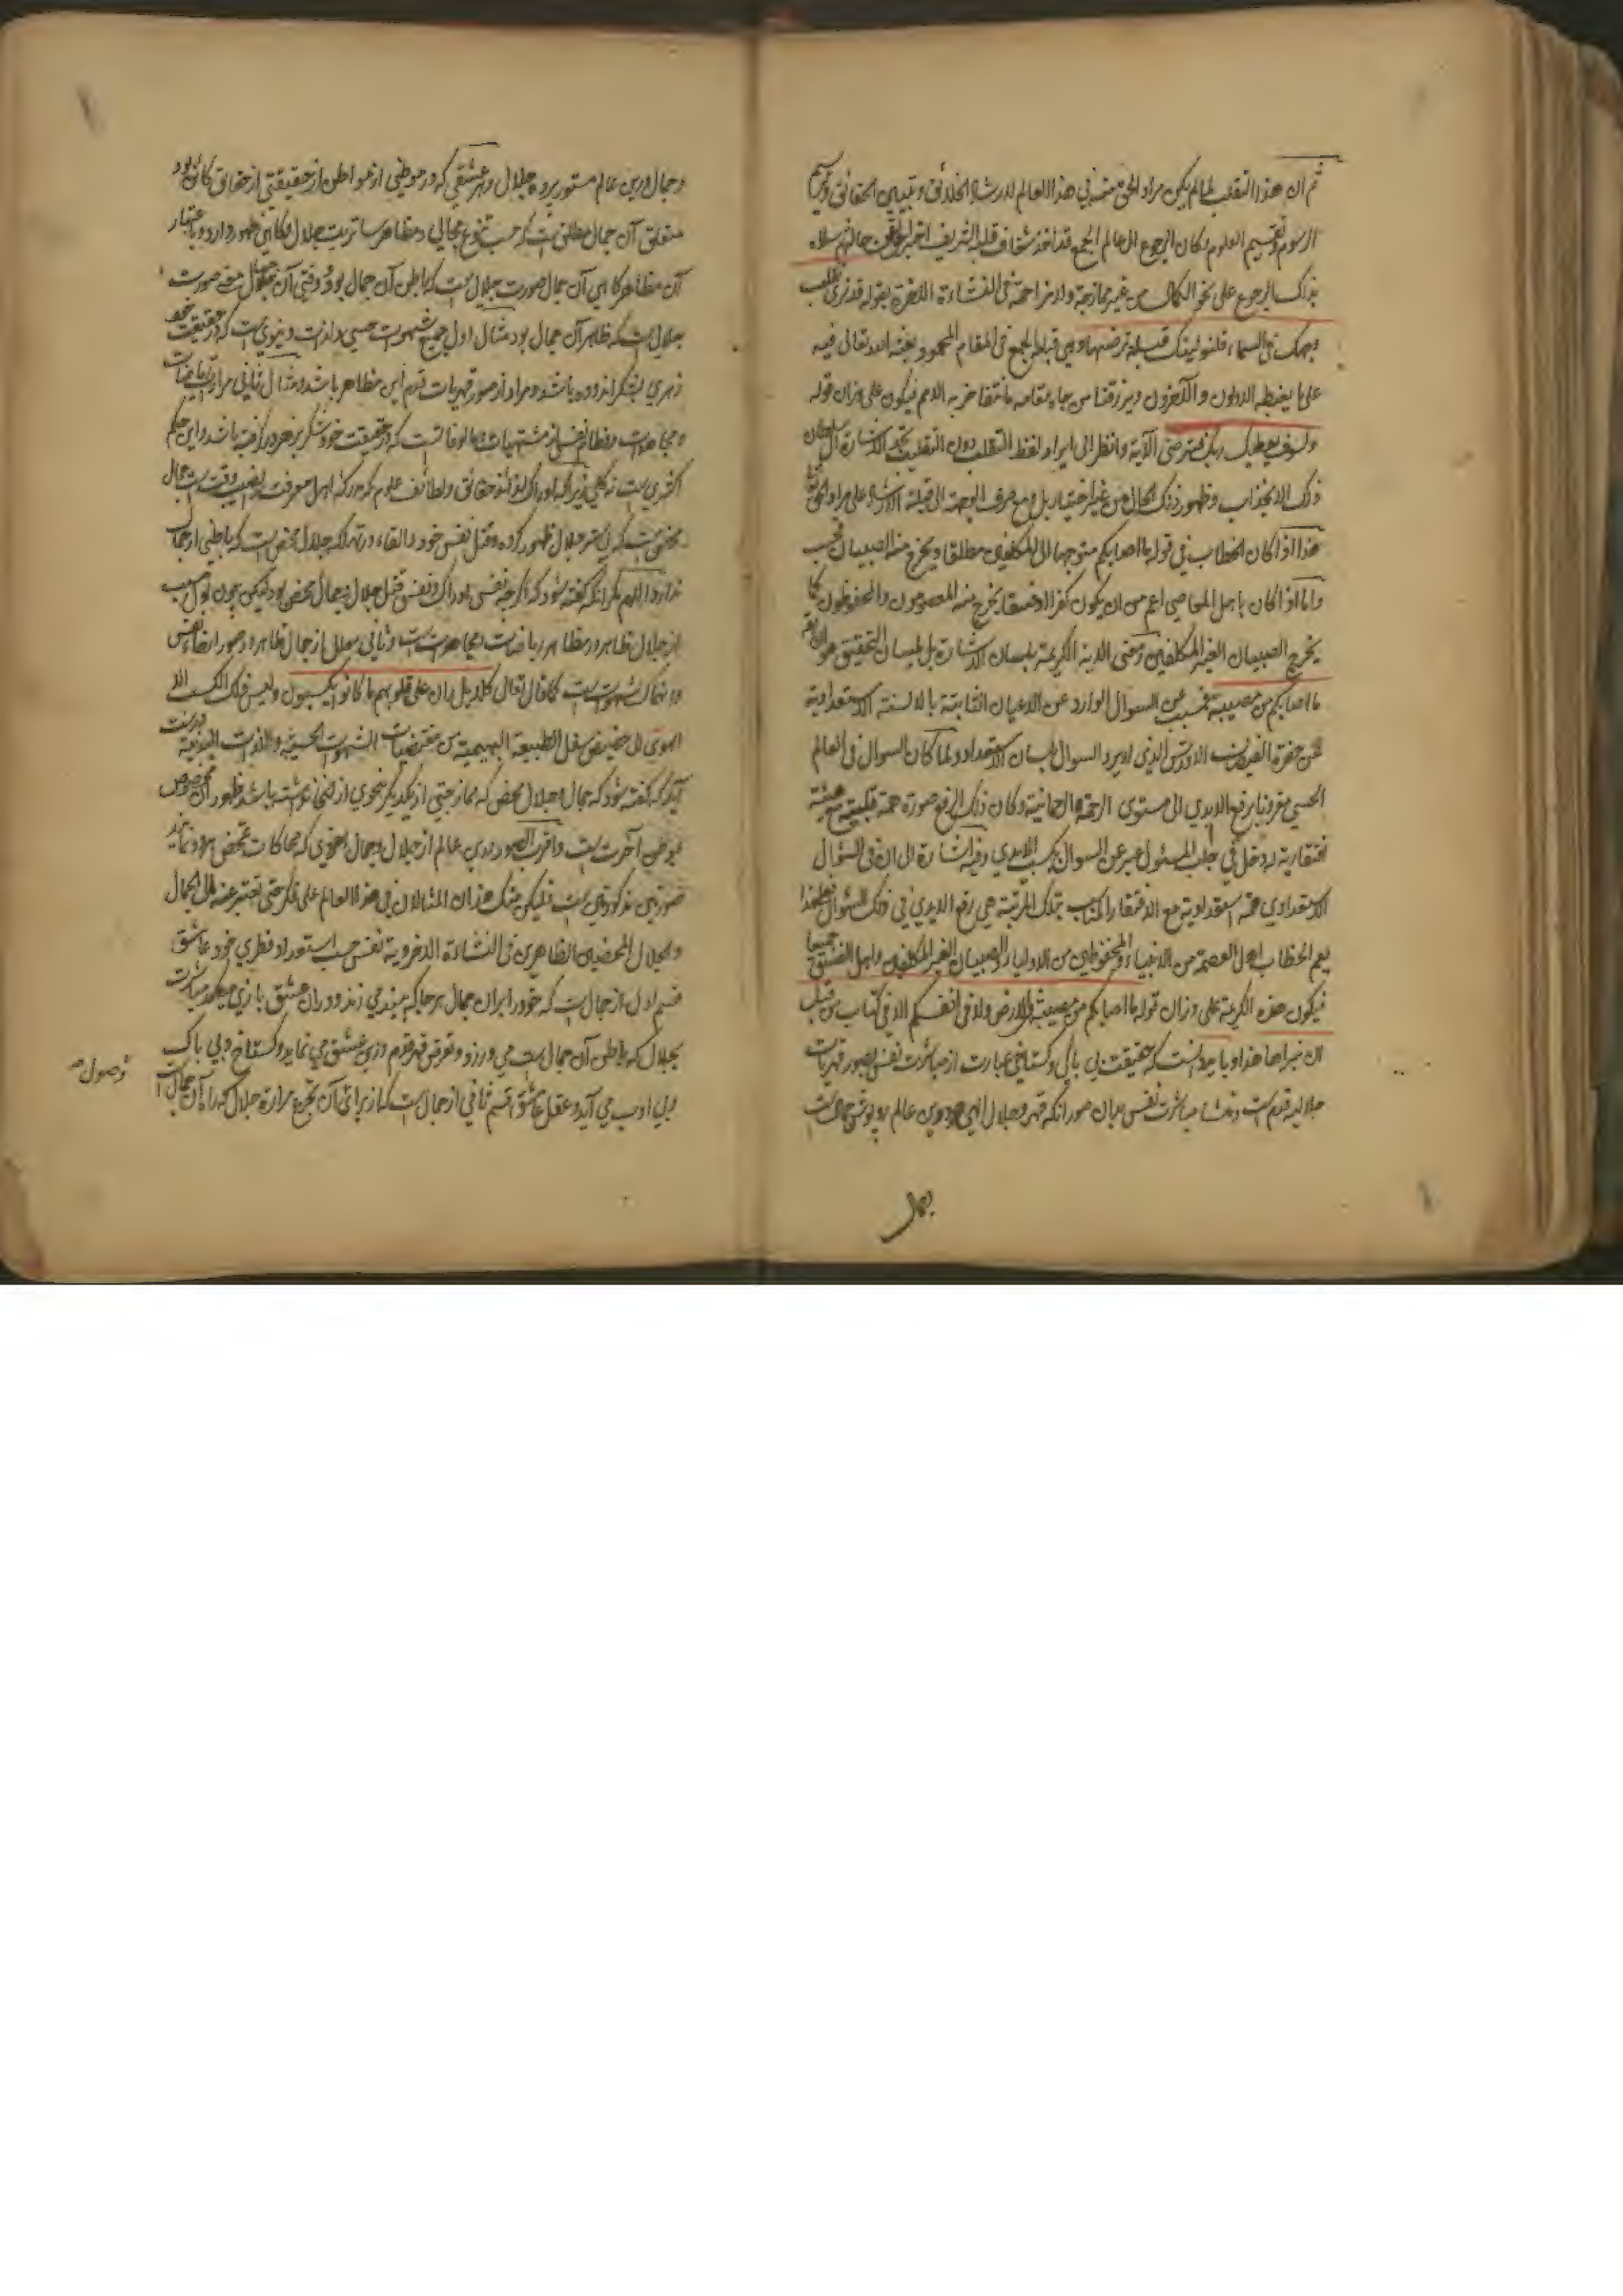 ثم ان هذا التقلب لما لم يكن مراد الحق منه في هذا العالم لارشاد الخلائق و تبيين الحقائق و ترسيم
الرسوم و تقسيم العلوم و كان الرجوع الى عالم الجمع قد اخذ شغاف قلبه الشريف اخبر الحق عن حاله و سلاه
بذلك الرجوع على نحو الكمال من غير ممازجة و لا مزاحمة في النشاءة الاخرة بقوله قد نرى تقلب
وجهك في السماء فلنولينك قبلة ترضيها و هي قبلة الجمع في المقام المحمود يبعثه الله تعالى فيه
على ما يغبطه الاولون و الآخرون و يرزقنا من جاه مقامه ما نتفاخر به الامم فيكون على وزان قوله
و لسوف يعطيك ربك فترضى الآية و انظر الى ايراد لفظ التقلب دون التقليب تجد الاشارة الى سلطان
ذلك الانجذاب و ظهور ذلك الحال من غير اختيار بل و مع صرف الوجهة الى قبلة الارشاد على مراد الحق
هذا اذا كان الخطاب في قوله ما اصابكم متوجها الى المكلفين مطلقا و يخرج منه الصبيان فحسب
و اما اذا كان باهل المعاصي اعم من ان يكون كفرا او فسقا يخرج منه المعصومون و المحفوظون كما
يخرج الصبيان الغير المكلفين و معنى الاية الكريمة بلسان الاشارة بل بلسان التحقيق هو ان يقر
ما اصابكم من مصيبة فبسبب عن السوال الوارد عن الاعيان الثابتة بالالسنة الاستعدادية
عن حضرة الفيض الاقدس الذي لا يرد السوال بلسان الاستعداد و لما كان السوال في العالم
الحسي مقرونا برفع الايدي الى مستوى الرحمة الرحمانية و كان ذلك الرفع صورة همة قلبية مع هيئة
افتقارية له دخل في جلب المسئول عبر عن السوال بكسب الايدي و فيه اشارة الى ان في السؤال
الاستعدادي همة استعدادية مع الافتقار المناسب بتلك المرتبة هي رفع الايدي في ذلك السؤال فعلى هذا
يعم الخطاب اهل العصمة من الانبياء و المحفوظين من الاولياء و الصبيان الغير المكلفين و اهل الفسق جميعا
فيكون هذه الكريمة على وزان قوله ما اصابكم من مصيبة في الارض و لا في انفسكم الا في كتاب من قبل
ان نبراها هذا و بايد دانست كه حقيقت بي باكي و گستاخي عبارت از مباشرت نفس بصور قهريات
جلاليه قدم است و منشاء مباشرت نفس بدان صور آنكه قهر و جلال الهي چو درين عالم روپوش جمال است
بجمال
و جمال درين عالم مستور پرده جلال و هر عشقي كه در موطني از مواطن از حقيقتي از حقايق كائن بود
متعلق آن جمال مطلق است كه حسب تنوع مجالي و مظاهر ساتريت جلال گاهي ظهور دارد و باعتبار
آن مظاهر گاهي آن جمال صورت جلال است كه باطن آن جمال بود و وقتي آن جمال صورت
جلال است كه ظاهر آن جمال بود مثال اول جميع شهوات حسي و لذات دنيوي است كه در حقيقت خود
زهري بشكر اندوده باشد و مراد از صور قهريات قدم اين مظاهر باشد و مثال ثاني مراد رياضات
و مجاهدات و فطام نفس از مشتهيات و مالوفات است كه در حقيقت خود شكر بزهر در گرفته باشد و اين حكم
اكثري است نه كلي زيرا كه ادراك لذائذ حقائق و لطائف علوم كه مدركه اهل معرفت را نصيب وقت است جمال
محض است كه بي ستر جلال ظهور كرده و قتل نفس خود و القاء در تهلكه جلال محض است كه باطني از جمال
ندارد اللهم مگر آنكه گفته شود كه اگرچه نفس ادراك و نفس قتل جلال و جمال محض بود ليكن چون اول مسبب
از جلال ظاهر در مظاهر رياضات و مجاهدات است و ثاني معلل از جمال ظاهر در صور ارضاء نفس
و انهماك شهوات است كما قال تعالى كلا بل ران على قلوبهم ما كانوا يكسبون و ليس ذلك الكسب الا
الهوى الى حضيض سفل الطبيعة البهيمية من مقتضيات الشهوات الحسية و اللذات البدنية درست
آيد كه گفته شود كه جمال و جلال محض كه ممازجتي از يكديگر بنحوي از انحا نداشته باشد ظهور آن مخصوص
بموطن آخرت است و اقرب الصور درين عالم از جلال و جمال اخروي كه محاكات تمحض هر دو نمايد
صورتين مذكورتين است فليكن منك هذان المثالان في هذا العالم على ذكر حتى تعتبر عنه الى الجمال
و الجلال المحضين الظاهرين في النشاءة الاخروية نفس حسب استعداد فطري خود عاشق
قسم اول از جمال است كه خود را بران جمال هر جا كه بيند مي زند و دران عشق بازي ميكند مباشرت
بجلال كه باطن آن جمال است مي ورزد و تعرض قهر قدم درين عشق مي نمايد و گستاخ و بي باك
و بي ادب مي آيد و عقل عاشق قسم ثاني از جمال است كه از براي آن تجرع مرارة جلال كه راه آن جمال است
وصول